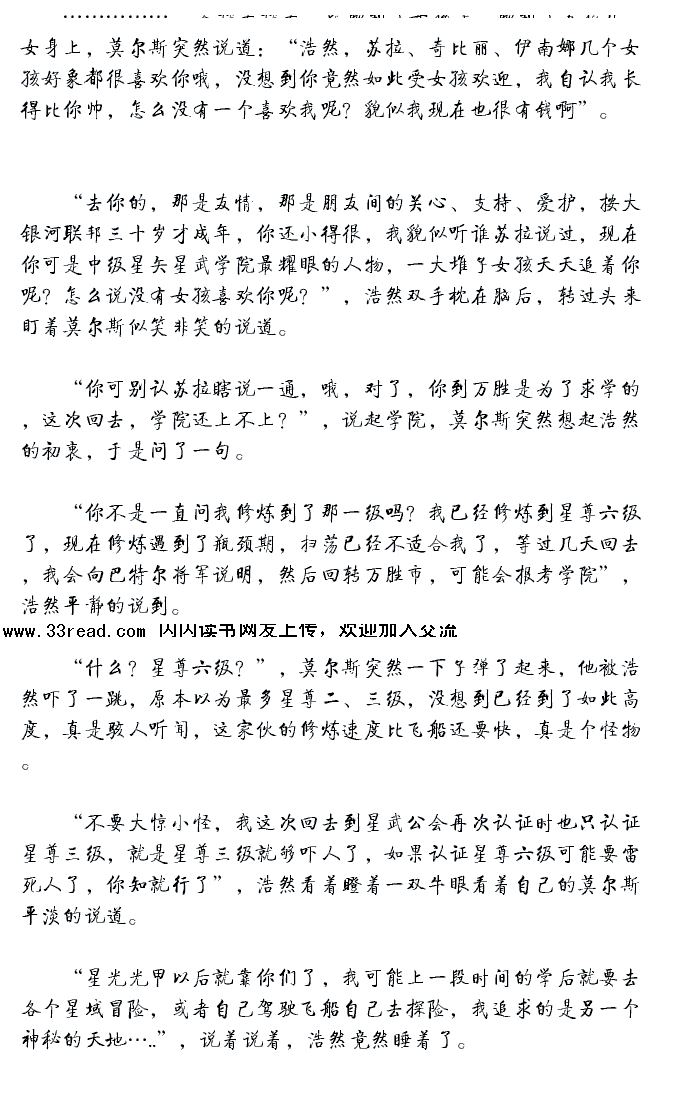 女身上，莫尔斯突然说道：“浩然，苏拉、奇比丽、伊南娜几个女
孩好象都很喜欢你哦，没想到你竟然如此受女孩欢迎，我自认我长
得比你帅，怎么没有一个喜欢我呢？貌似我现在也很有钱啊”。
“去你的，那是友情，那是朋友间的关心、支持、爱护，按大
银河联邦三十岁才成年，你还小得很，我貌似听谁苏拉说过，现在
你可是中级星矢星武学院最耀眼的人物，一大堆子女孩天天追着你
呢？怎么说没有女孩喜欢你呢？”，浩然双手枕在脑后，转过头来
盯着莫尔斯似笑非笑的说道。
“你可别认苏拉瞎说一通，哦，对了，你到万胜是为了求学的
，这次回去，学院还上不上？”，说起学院，莫尔斯突然想起浩然
的初衷，于是问了一句。
“你不是一直问我修炼到了那一级吗？我已经修炼到星尊六级
了，现在修炼遇到了瓶颈期，扫荡已经不适合我了，等过几天回去
，我会向巴特尔将军说明，然后回转万胜市，可能会报考学院”，
浩然平静的说到。
www.33read.com 闪闪读书网友上传，欢迎加入交流
“什么？星尊六级？”，莫尔斯突然一下子弹了起来，他被浩
然吓了一跳，原本以为最多星尊二、三级，没想到已经到了如此高
度，真是骇人听闻，这家伙的修炼速度比飞船还要快，真是个怪物
。
“不要大惊小怪，我这次回去到星武公会再次认证时也只认证
星尊三级，就是星尊三级就够吓人了，如果认证星尊六级可能要雷
死人了，你知就行了”，浩然看着瞪着一双牛眼看着自己的莫尔斯
平淡的说道。
“星光光甲以后就靠你们了，我可能上一段时间的学后就要去
各个星域冒险，或者自己驾驶飞船自己去探险，我追求的是另一个
神秘的天地…..”，说着说着，浩然竟然睡着了。